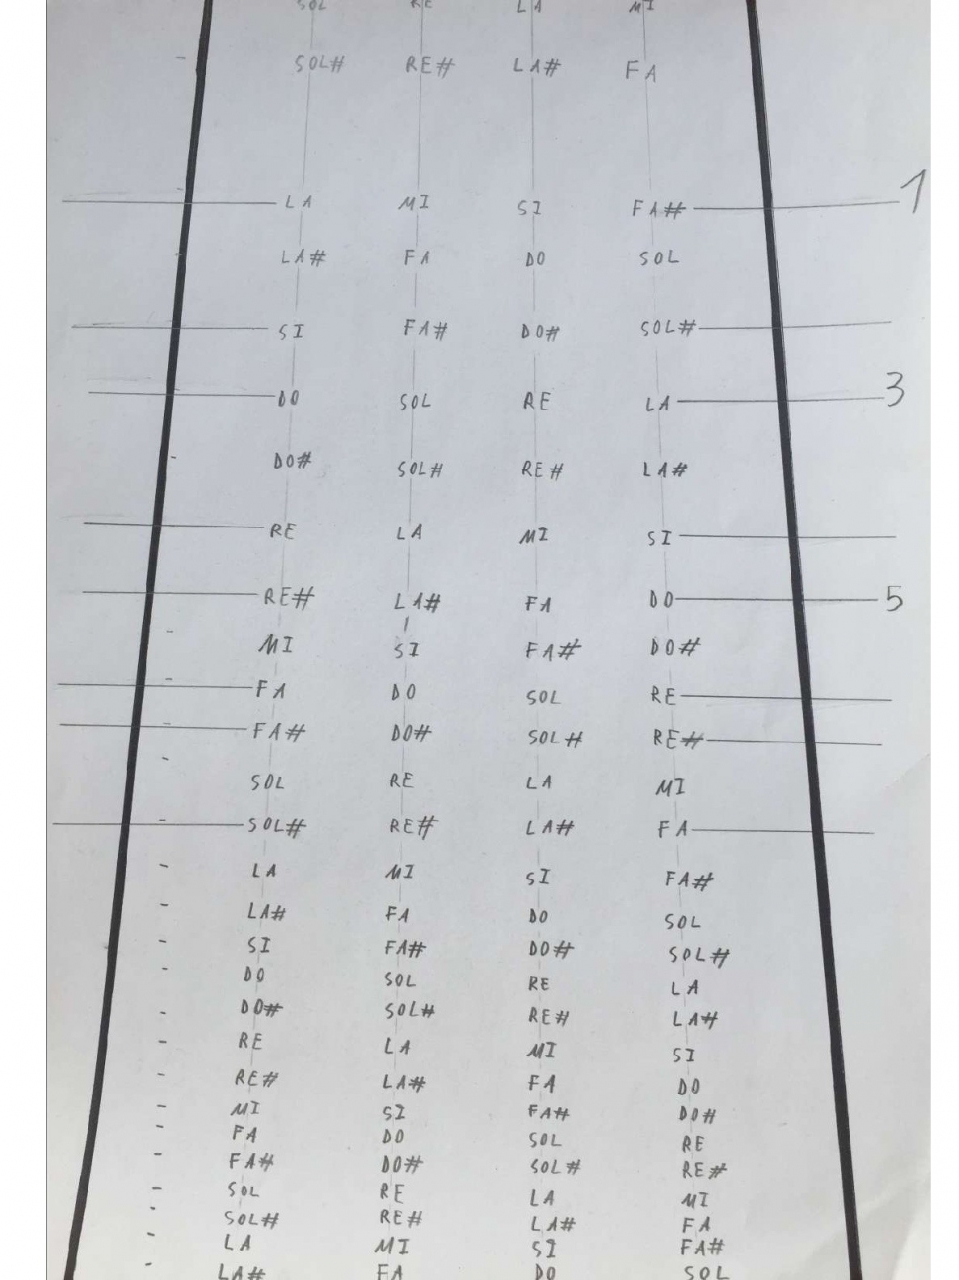 SOL RE LA MI
SOL# RE# LA# FA
LA MI SI FA# 1
LA# FA DO SOL
SI FA# DO# SOL#
DO SOL RE LA 3
DO# SOL# RE# LA#
RE LA MI SI
RE# LA# FA DO 5
MI SI FA# DO#
FA DO SOL RE
FA# DO# SOL# RE#
SOL RE LA MI
SOL# RE# LA# FA
LA MI SI FA#
LA# FA DO SOL
SI FA# DO# SOL#
DO SOL RE LA
DO# SOL# RE# LA#
RE LA MI SI
RE# LA# FA DO
MI SI FA# DO#
FA DO SOL RE
FA# DO# SOL# RE#
SOL RE LA MI
SOL# RE# LA# FA
LA MI SI FA#
LA# FA DO SOL